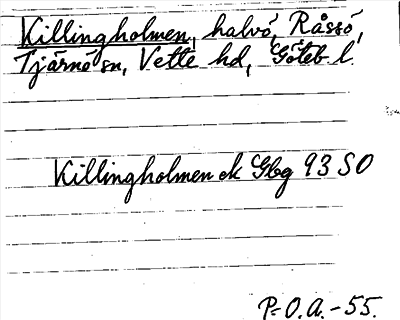 Killingholmen, halvö, Råssö,
Tjärnö sn, Vette hd, Göteb l.
Killingholmen ek Gbg 93 SO
P-O.A.-55.